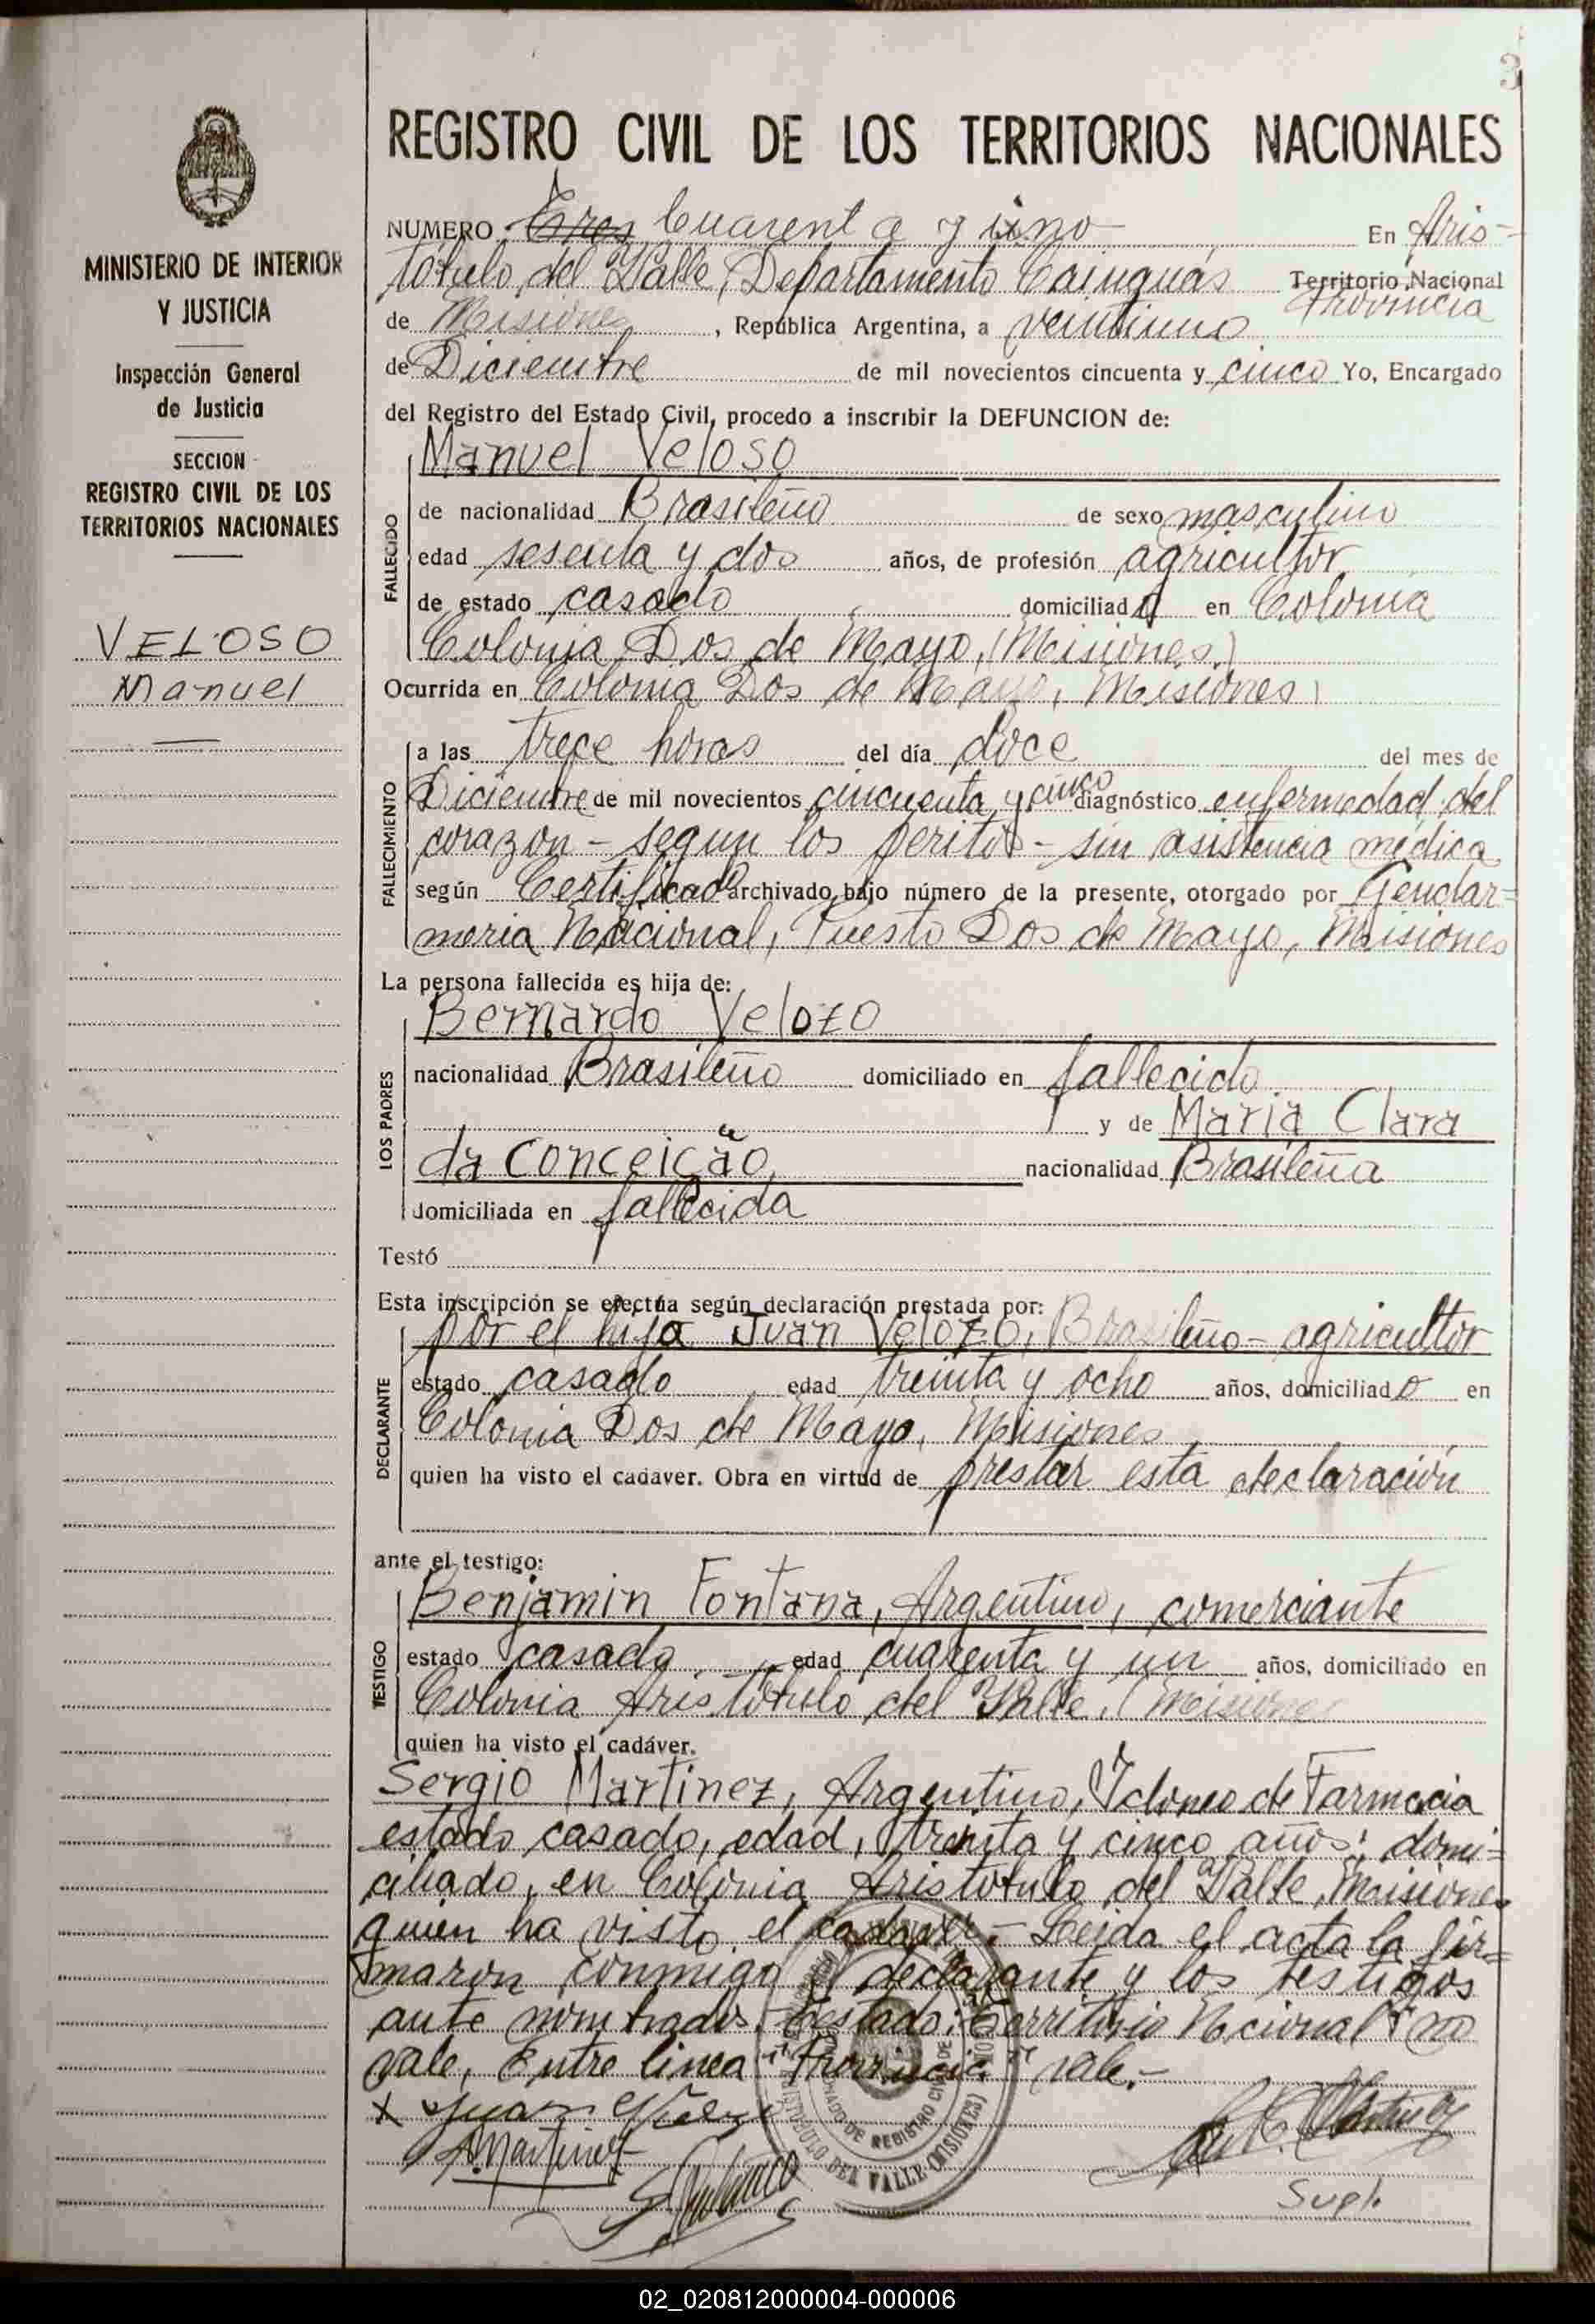 3
MINISTERIO DE INTERIOR
Y JUSTICIA
Inspección General
de Justicia
SECCION
REGISTRO CIVIL DE LOS
TERRITORIOS NACIONALES
VELOSO
Manuel
REGISTRO CIVIL DE LOS TERRITORIOS NACIONALES
NUMERO Tres Cuarenta y uno En Aris-
tóbulo del Valle, Departamento Cainguás Territorio Nacional
Provincia
de Misiones, República Argentina, a veintiuno
de Diciembre de mil novecientos cincuenta y cinco Yo, Encargado
del Registro del Estado Civil, procedo a inscribir la DEFUNCION de:
Manuel Veloso
FALLECIDO
de nacionalidad Brasileño de sexo masculino
edad sesenta y dos años, de profesión agricultor
de estado casado domiciliado en Colonia
Colonia Dos de Mayo, (Misiones.)
Ocurrida en Colonia Dos de Mayo, Misiones
FALLECIMIENTO
a las trece horas del día doce del mes de
Diciembre de mil novecientos cincuenta y cinco diagnóstico enfermedad del
corazon - segun los peritos - sin asistencia médica
según Certificado archivado bajo número de la presente, otorgado por Gendar-
meria Nacional, Puesto Dos de Mayo, Misiones
La persona fallecida es hija de:
LOS PADRES
Bernardo Velozo
nacionalidad Brasileño domiciliado en fallecido
y de Maria Clara
da Conceição, nacionalidad Brasileña
domiciliada en fallecida
Testó
Esta inscripción se efectúa según declaración prestada por:
DECLARANTE
por el hijo Juan Velozo, Brasileño - agricultor
estado casado edad treinta y ocho años, domiciliado en
Colonia Dos de Mayo, Misiones
quien ha visto el cadáver. Obra en virtud de prestar esta declaración
ante el testigo:
TESTIGO
Benjamin Fontana, Argentino, comerciante
estado casado, edad cuarenta y un años, domiciliado en
Colonia Aristóbulo del Valle, (Misiones
quien ha visto el cadáver.
Sergio Martinez, Argentino, Idoneo de Farmacia
estado casado, edad, treinta y cinco años; domi-
ciliado, en Colonia Aristóbulo del Valle, Misiones
quien ha visto el cadaver.- Leida el acta la fir-
maron conmigo el declarante y los testigos
ante nombrados. Testado: "Territorio Nacional" no
vale, Entre linea "Provincia" vale.-
x Juan
Martinez
DE REGISTRO CIVIL DE
DEL VALLE (MISIONES)
Supl.
02_020812000004-000006